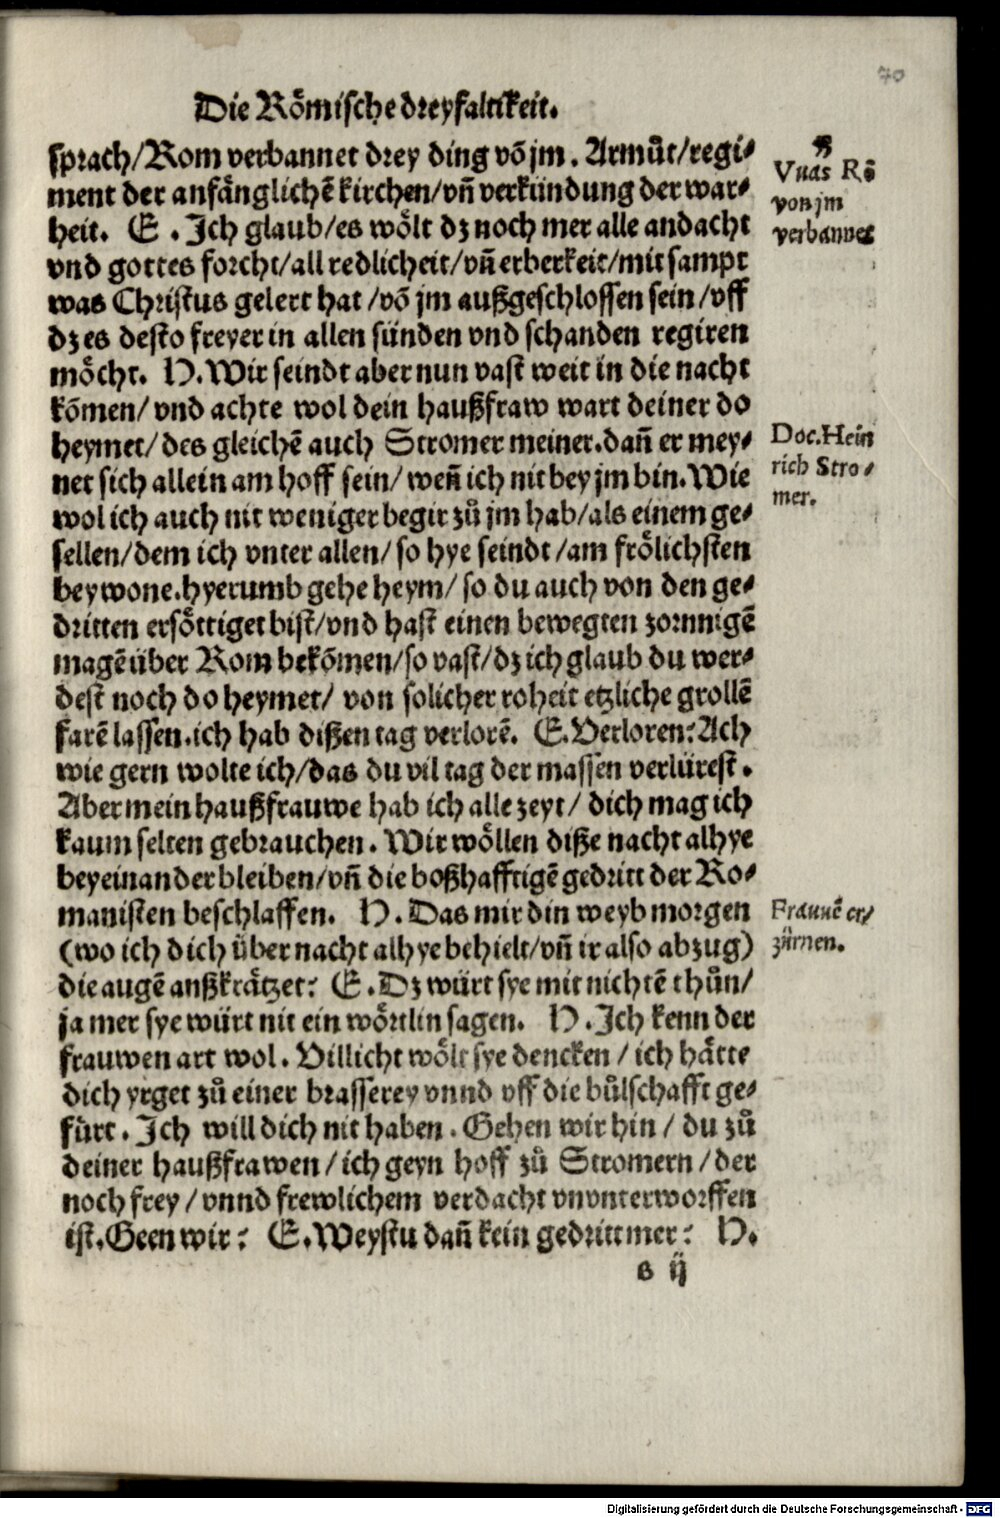 70
Die Rö́mische dreyfaltikeit.
sprach/Rom verbannet drey ding vō jm. Armůt/regi⸗
ment der anfänglichē kirchen/vn̄ verkündung der war⸗
heit. E. Ich glaub/es wölt dz noch mer alle andacht
vnd gottes forcht/all redlicheit/vn̄ erberkeit/mit sampt
was Christus gelert hat/vō jm außgeschlossen sein/vff
dz es desto freyer in allen sünden vnd schanden regiren
möcht. H. Wir seindt aber nun vast weit in die nacht
kōmen/vnd achte wol dein haußfraw wart deiner do
heymet/des gleichē auch Stromer meiner. dan̄ er mey⸗
net sich allein am hoff sein/wen̄ ich nit bey jm bin. Wie
wol ich auch nit weniger begir zů jm hab/als einem ge⸗
sellen/dem ich vnter allen/so hye seindt/am frölichsten
beywone. hyerumb gehe heym/so du auch von den ge⸗
dritten ersöttiget bist/vnd hast einen bewegten zornnigē
magē über Rom bekōmen/so vast/dz ich glaub du wer⸗
dest noch do heymet/von solicher roheit etzliche grollē
farē lassen. ich hab dißen tag verlorē. E. Verloren? Ach
wie gern wolte ich/das du vil tag der massen verlürest.
Aber mein haußfrauwe hab ich alle zeyt/dich mag ich
kaum selten gebrauchen. Wir wöllen diße nacht alhye
beyeinander bleiben/vn̄ die boßhafftigē gedritt der Ro⸗
manisten beschlaffen. H. Das mir din weyb morgen
(wo ich dich über nacht alhye behielt/vn̄ ir also abzug)
die augē außkrätzet? E. Dz würt sye mit nichtē thůn/
ja mer sye würt nit ein wörtlin sagen. H. Ich kenn der
frauwen art wol. Villicht wölt sye dencken/ich hätte
dich yrget zů einer brasserey vnnd vff die bůlschafft ge⸗
fürt. Ich will dich nit haben. Gehen wir hin/du zů
deiner haußfrawen/ich geyn hoff zů Stromern/der
noch frey/vnnd frewlichem verdacht vnvnterworffen
ist. Geen wir? E. Weystu dan̄ kein gedritt mer? H.
G ij
Vuas Rō
von jm
verbannet
Doc. Hein
rich Stro⸗
mer.
Frauuē er⸗
zürnen.
Digitalisierung gefördert durch die Deutsche Forschungsgemeinschaft - DFG